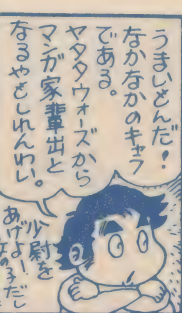 うまいどんだ！
なかなかのキャラ
である。
ヤタタウォーズから
マンガ家輩出と
なるやもしれんわい。
少尉を
あげよー